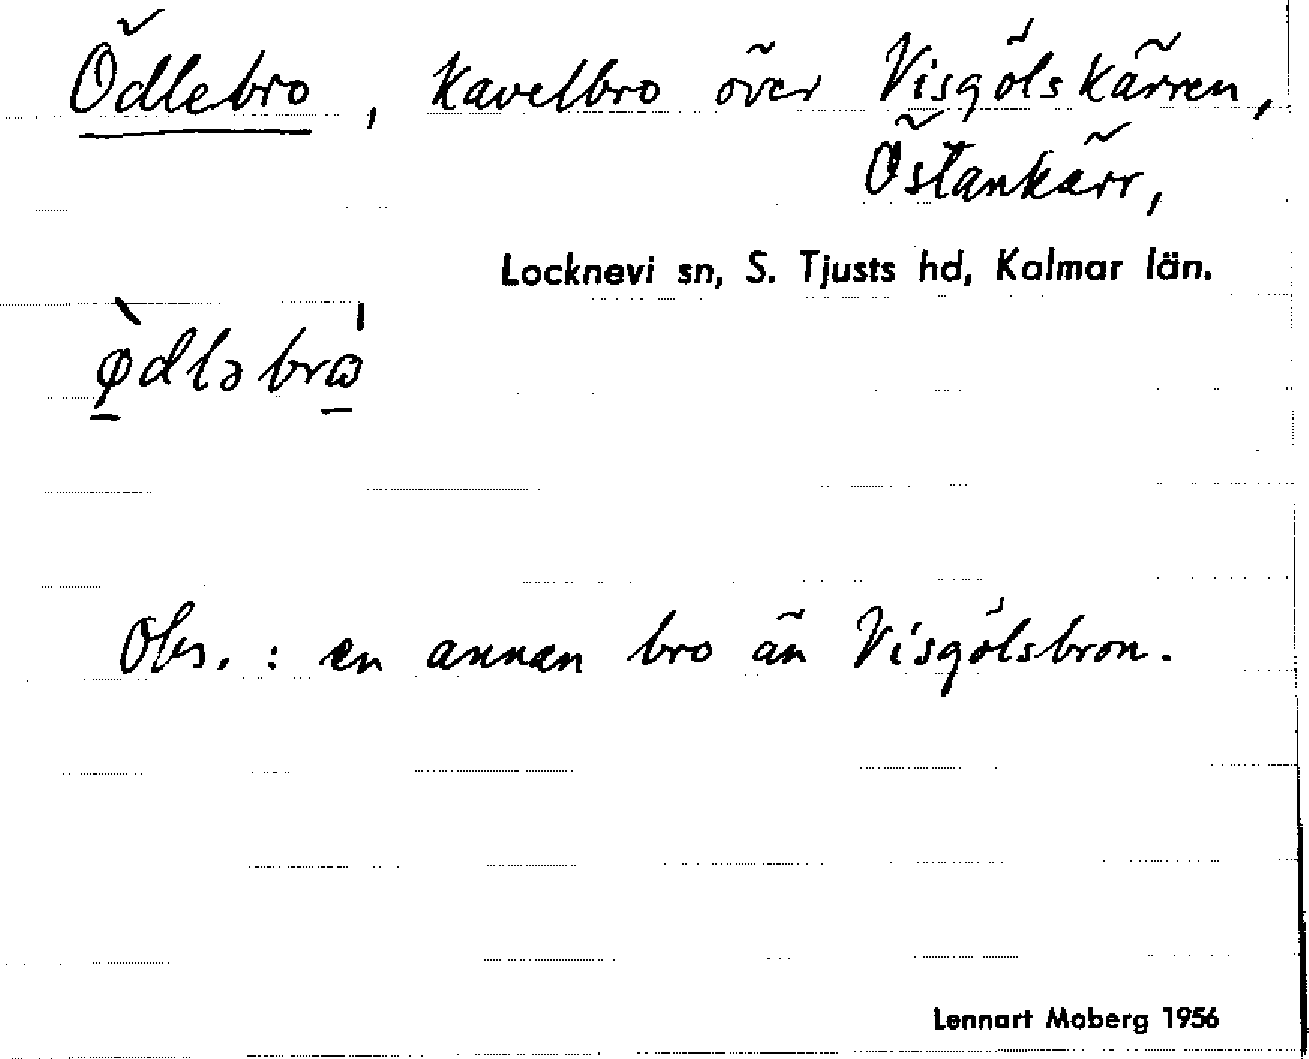 Ödlebro, kavelbro över Visgölskärren,
Östankärr,
Locknevi sn, S. Tjusts hd, Kalmar län.
ø̱̀dləbrω̱̍
Obs. : en annan bro än Visgölsbron.
Lennart Moberg 1956